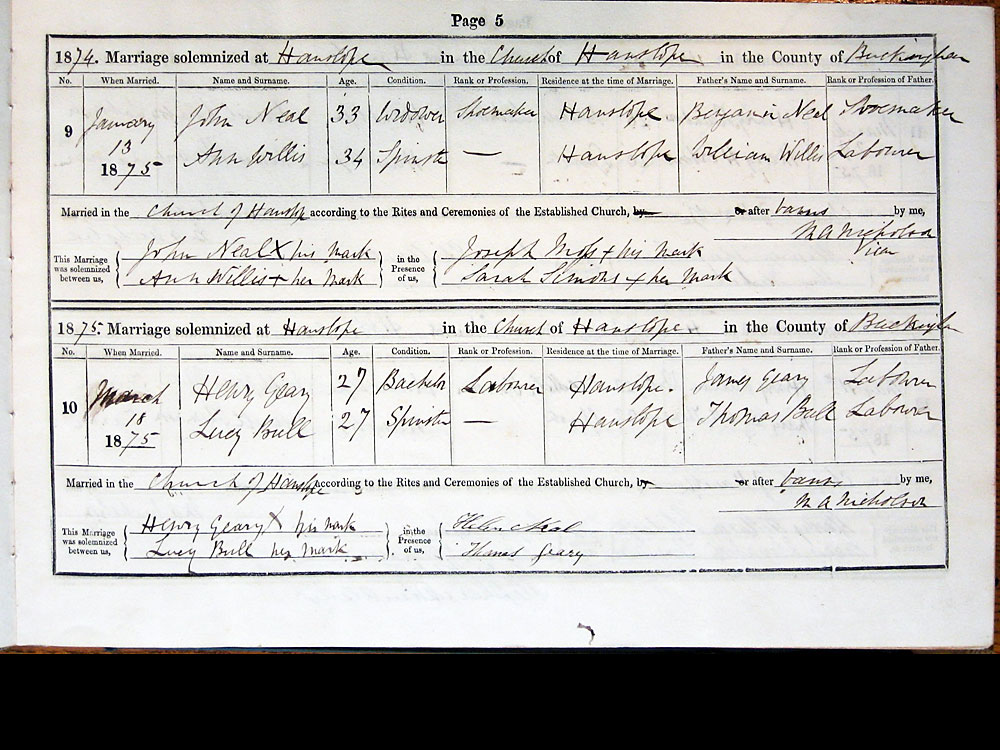 Page 5
1874. Marriage solemnized at Hanslope in the Church of Hanslope in the County of Buckingham
No. When Married. Name and Surname. Age. Condition. Rank or Profession. Residence at the time of Marriage. Father's Name and Surname. Rank or Profession of Father.
9 January 13 1875 John Neal 33 Widower Shoemaker Hanslope Benjamin Neal Shoemaker
Ann Willis 34 Spinster — Hanslope William Willis Labourer
Married in the Church of Hanslope according to the Rites and Ceremonies of the Established Church, by or after banns by me,
M A Nicholson
Vicar
This Marriage was solemnized between us, John Neal X his mark in the Presence of us, Joseph + his mark
Ann Willis + her mark Sarah Simons + her mark
1875. Marriage solemnized at Hanslope in the Church of Hanslope in the County of
No. When Married. Name and Surname. Age. Condition. Rank or Profession. Residence at the time of Marriage. Father's Name and Surname. Rank or Profession of Father.
10 March 18 1875 Henry Geary 27 Bachelor Labourer Hanslope. James Geary Labourer
Lucy Bull 27 Spinster — Hanslope Thomas Bull Labourer
Married in the Church of Hanslope according to the Rites and Ceremonies of the Established Church, by or after banns by me,
M A Nicholson
This Marriage was solemnized between us, Henry Geary X his mark in the Presence of us, Helen Neal
Lucy Bull her mark Thomas Geary